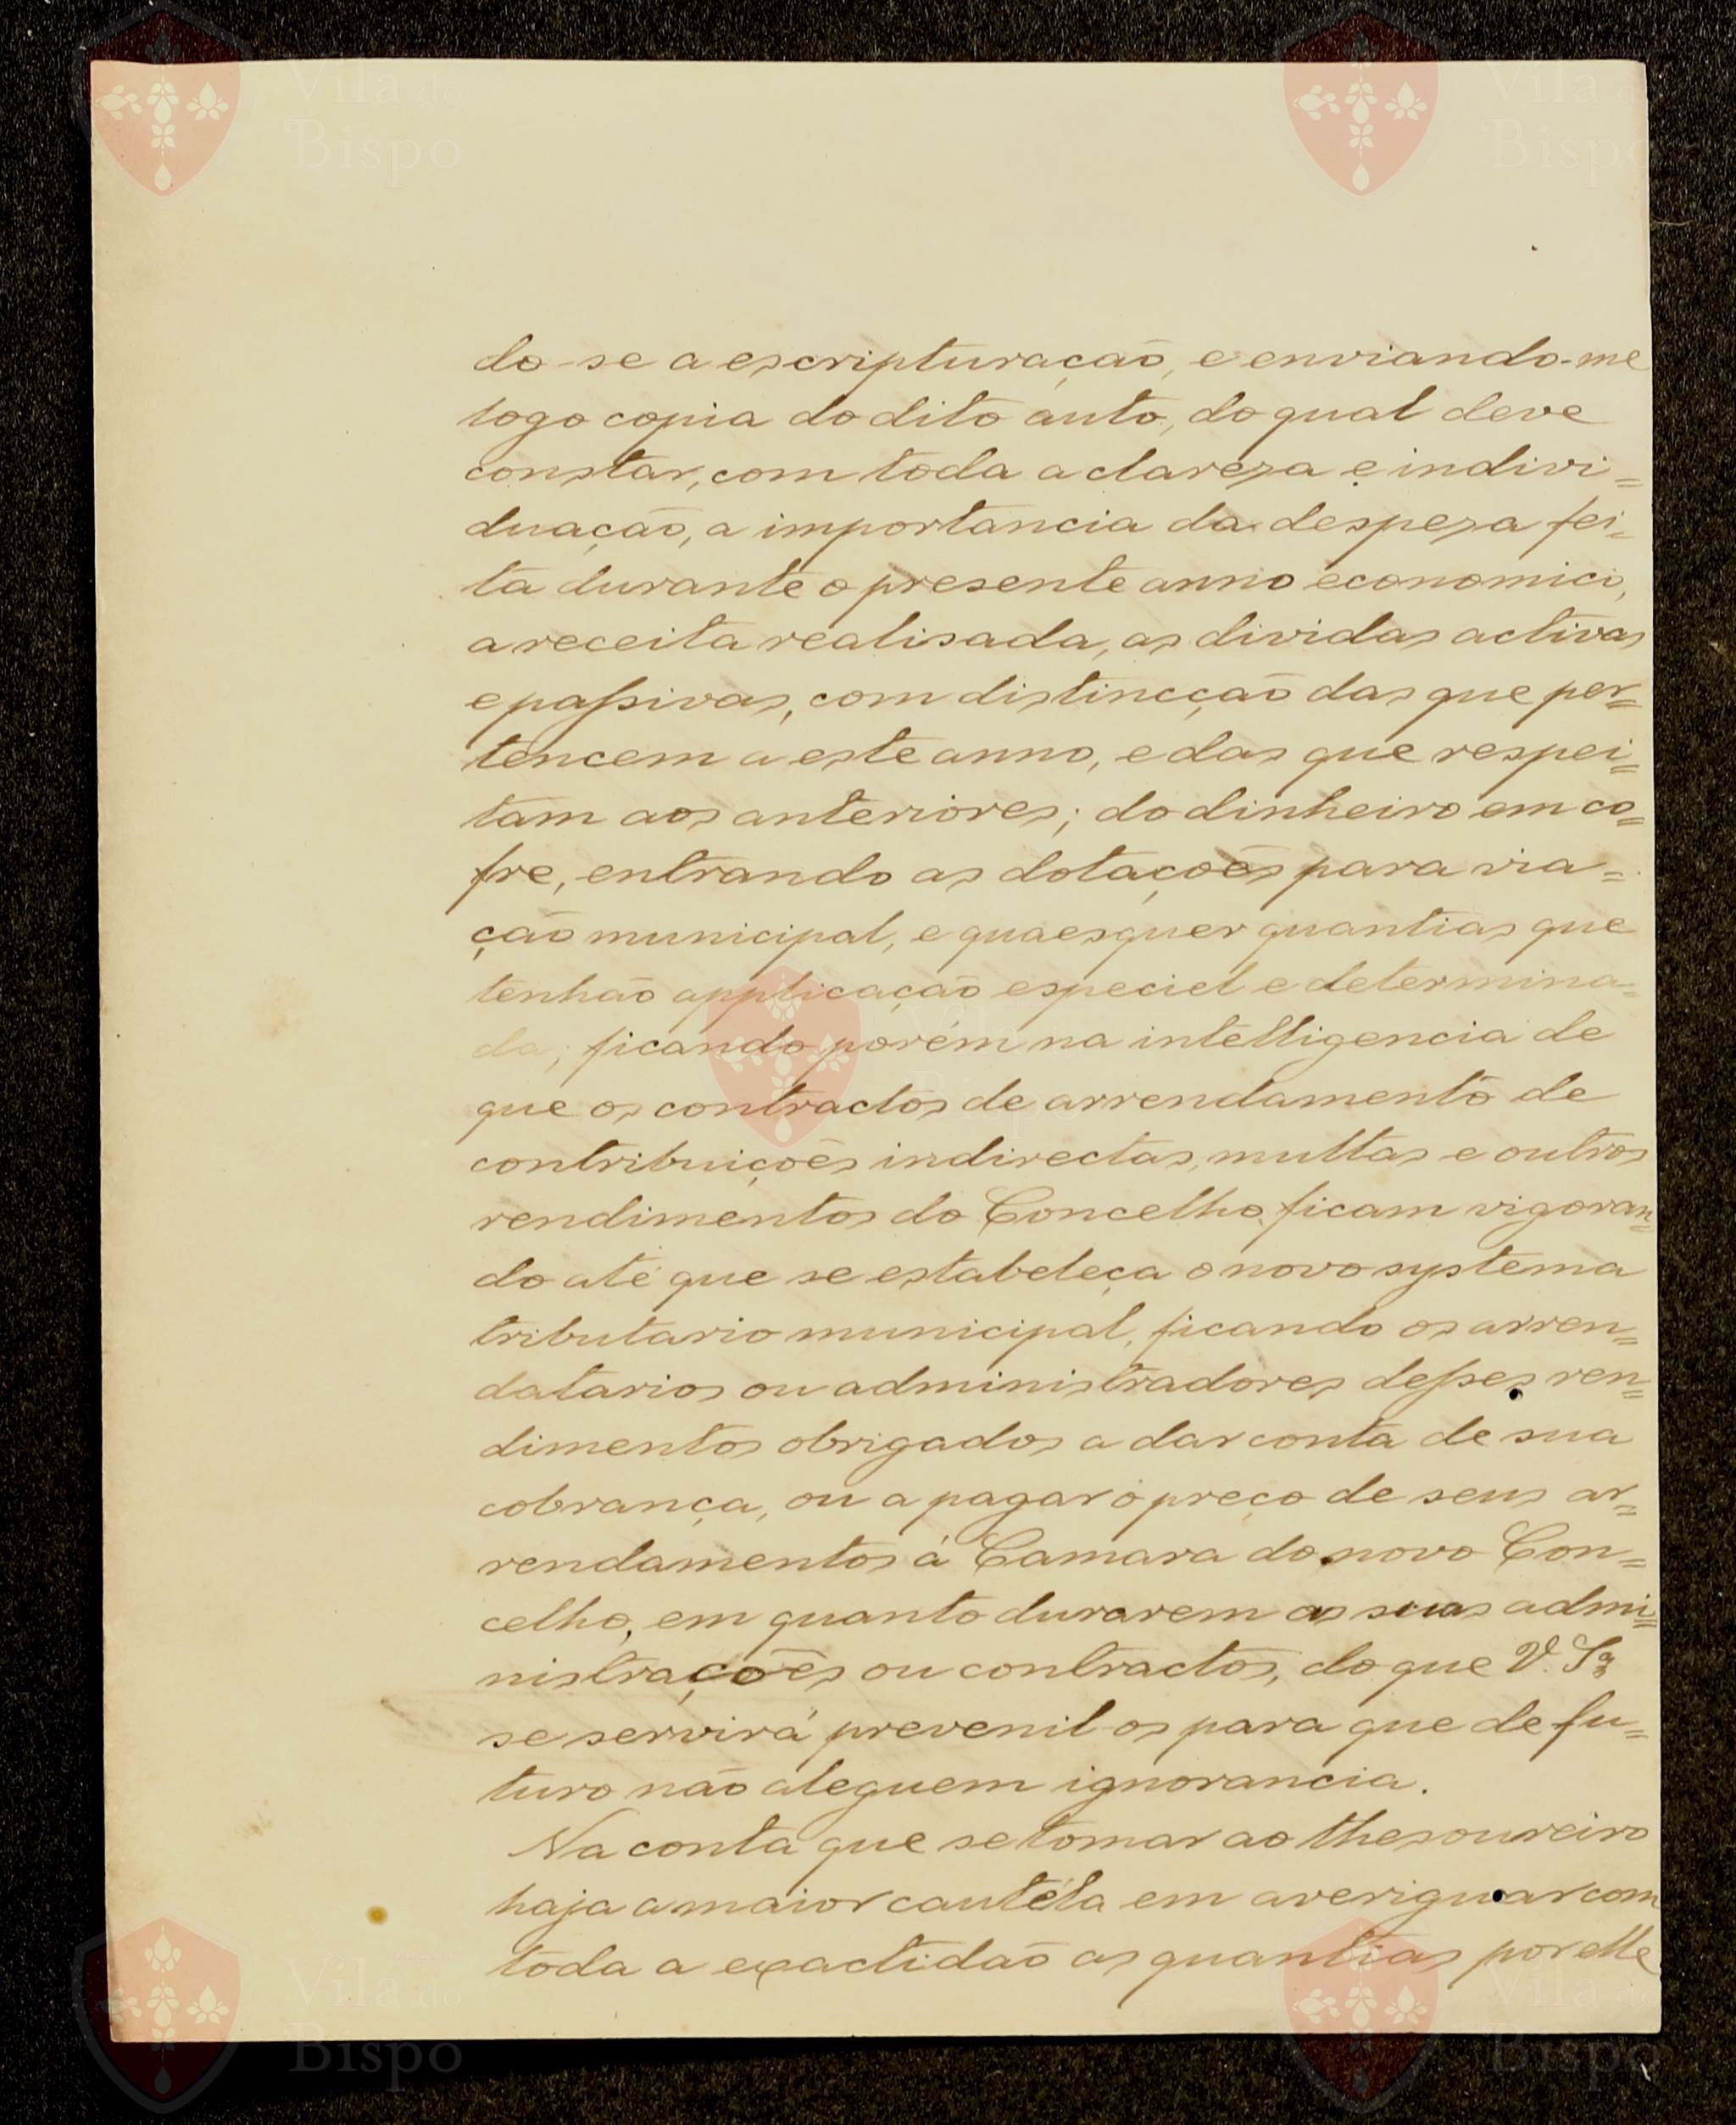 Vila do Bispo
Vila do Bispo
do-se a escripturação, e enviando-me
logo copia do dito auto, do qual deve
constar, com toda a clareza e indivi=
duação, a importancia da despeza fei=
ta durante o presente anno economico,
a receita realisada, as dividas activas
e passivas, com distincção das que per=
tencem a este anno, e das que respei=
tam aos anteriores; do dinheiro em co=
fre, entrando as dotações para via=
ção municipal, e quaesquer quantias que
tenhão applicação especiel e determina=
da; ficando porém na intelligencia de
que os contractos de arrendamento de
contribuições indirectas, multas e outros
rendimentos do Concelho ficam vigoran=
do até que se estabeleça o novo systema
tributario municipal, ficando os arren=
datarios ou administradores desses ren=
dimentos obrigados a dar conta de sua
cobrança, ou a pagar o preço de seus ar=
rendamentos á Camara do novo Con=
celho, em quanto durarem as suas admi=
nistrações ou contractos, do que V. Sª
se servirá prevenil-os para que de fu=
turo não aleguem ignorancia.
Na conta que se tomar ao thesoureiro
haja a maior cautéla em averiguar com
toda a exactidão as quantias por elle
Vila do Bispo
Vila do Bispo
Vila do Bispo